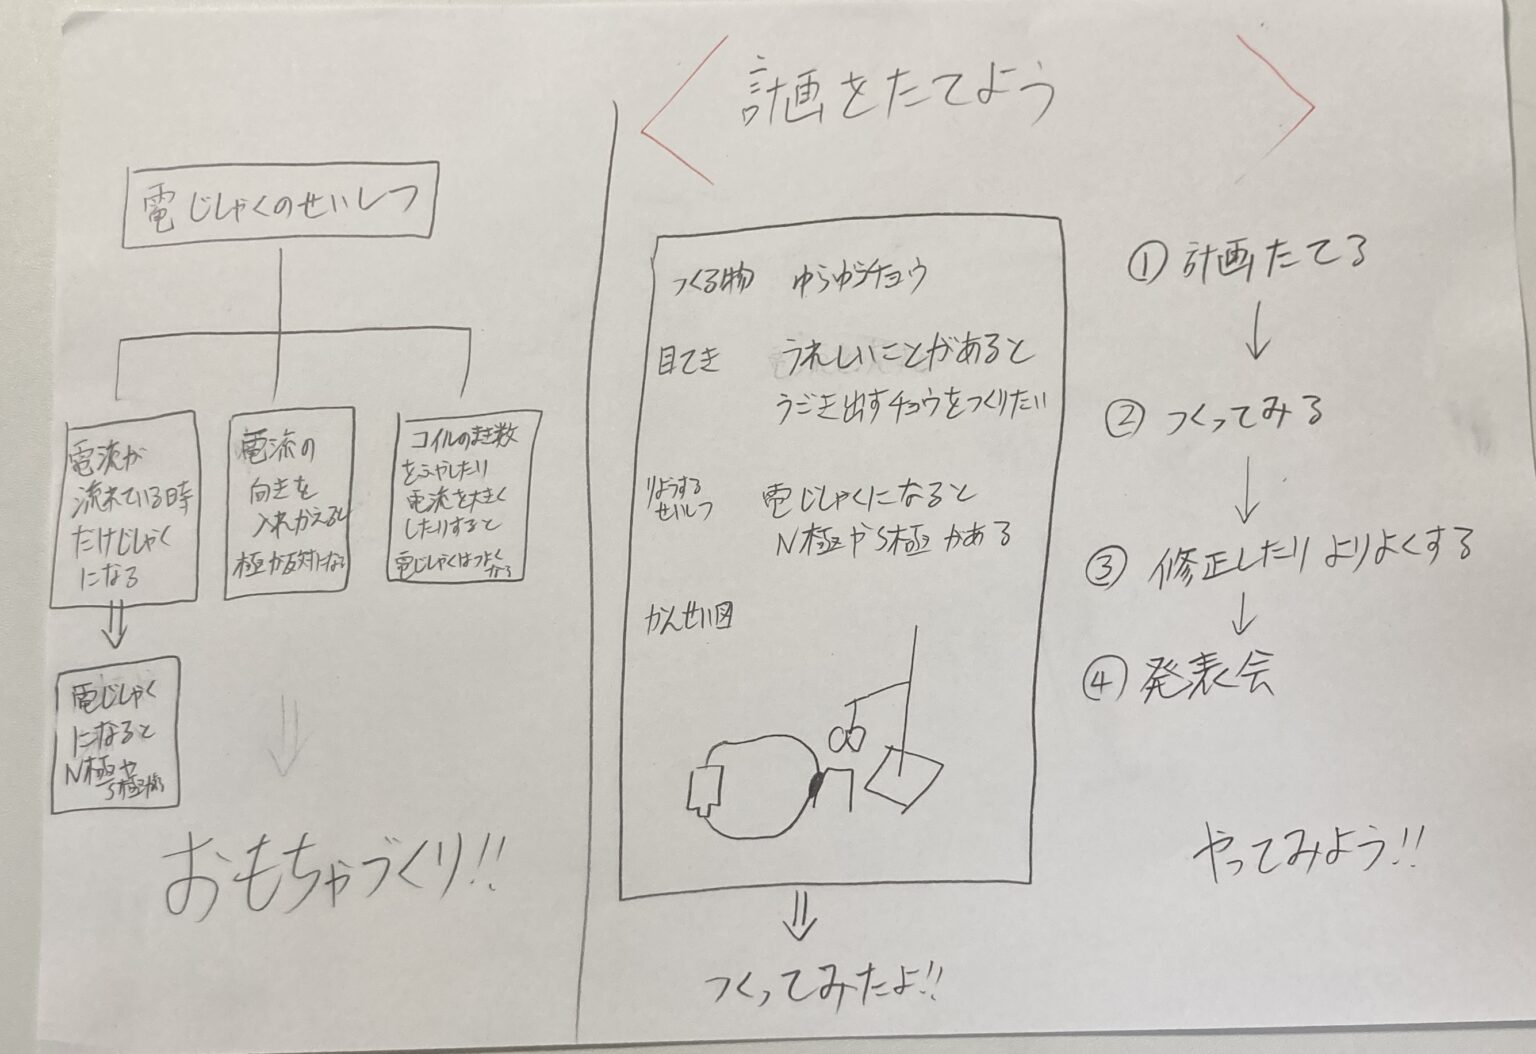 電じしゃくのせいしつ
電流が
流れている時
だけじしゃく
になる
電じしゃく
になると
N極や
電流の
向きを
入れかえると
極が反対になる
コイルのまき数
をふやしたり
電流を大きく
したりすると
電じしゃくはつよく
なる
おもちゃづくり!!
計画をたてよう
つくる物 ゆらゆらチョウ
目てき うれしいことがあると
うごき出すチョウをつくりたい
りようする
せいしつ
電じしゃくになると
N極やS極がある
かんせい図
つくってみたよ!!
① 計画たてる
② つくってみる
③ 修正したりよりよくする
④ 発表会
やってみよう!!